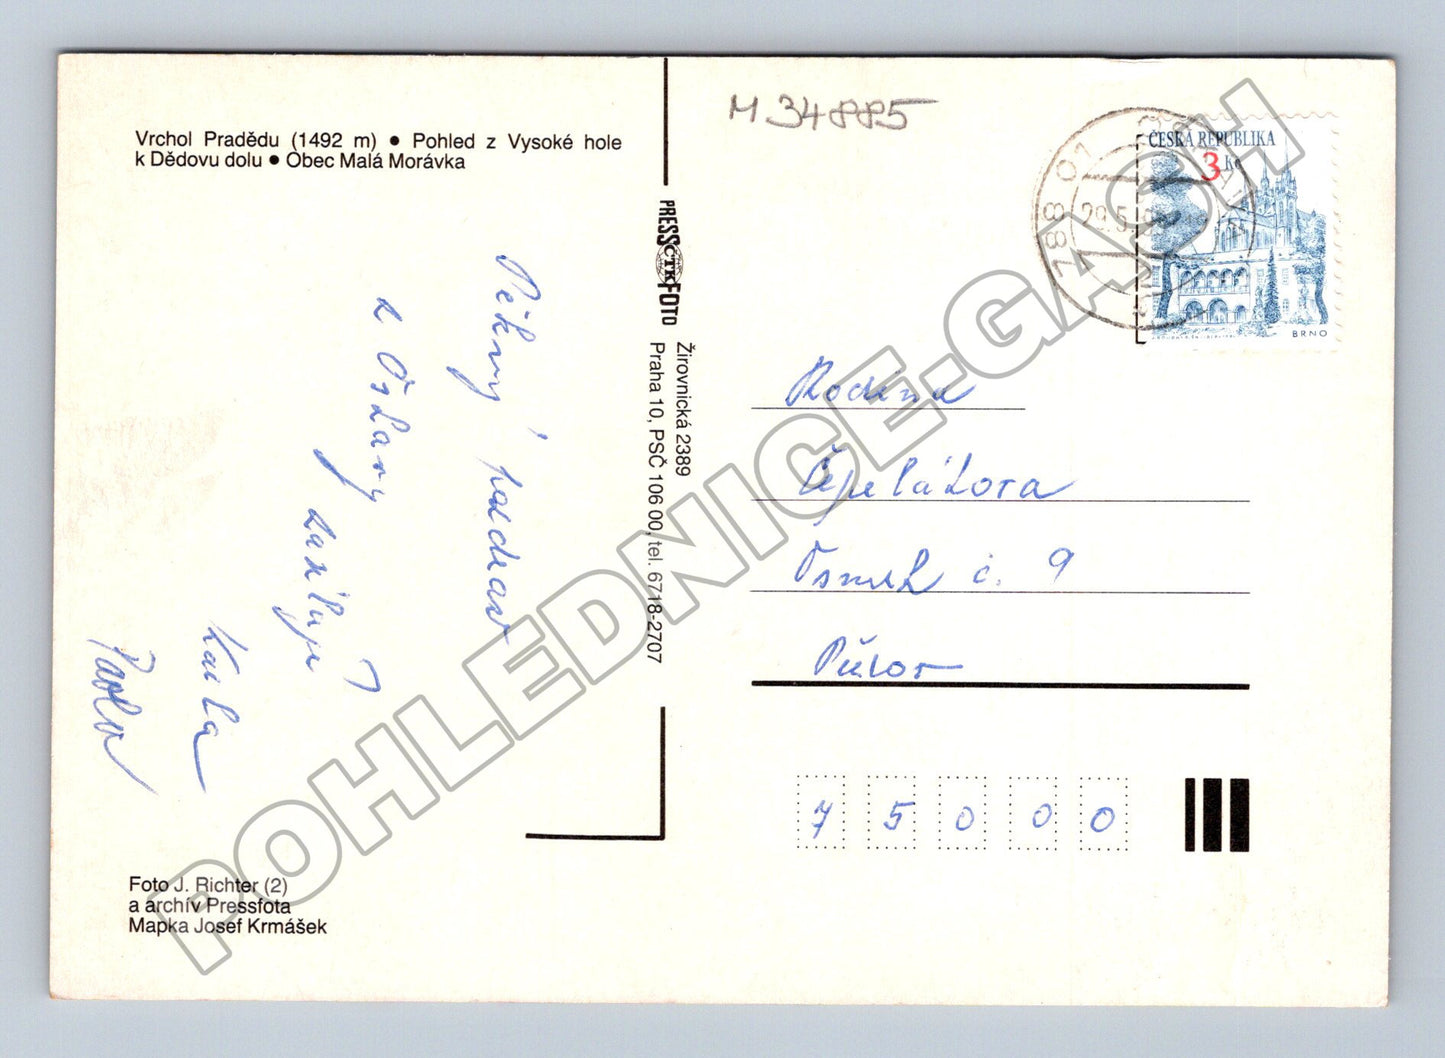 Vrchol Pradědu (1492 m) ● Pohled z Vysoké hole
k Dědovu dolu ● Obec Malá Morávka
Pěkný pozdrav
z Oslavy
zasílají
Kaila
Pavla
Foto J. Richter (2)
a archív Pressfota
Mapka Josef Krmášek
PRESSFOTO
ČTK
Žirovnická 2389
Praha 10, PSČ 106 00, tel. 6718-2707
M 34885
788 01
29.5.
ČESKÁ REPUBLIKA
3 Kč
BRNO
Rodina
Čepelákova
Osmek č. 9
Přerov
75000
POHLEDNICE-GASH